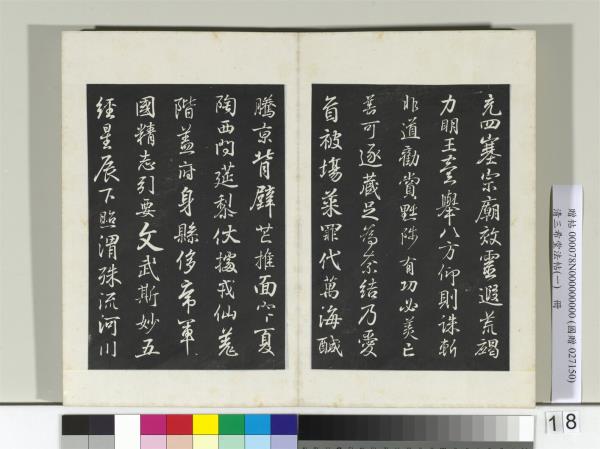 充四塞宗廟效靈遐荒竭
力明王臺舉八方仰則誅斬
非道勸賞黜陟有功必美亡
善可逐藏足為奈結乃愛
育被場菜罪代萬海鹹
騰京背壁芒推面穴夏
陶西問筵黎伏據我仙羌
階蓋府身縣侈席軍
國精志引要文武斯妙五
經星辰下照渭殊流河川
贈帖 000078N000000000 (國贈 027150)
清三希堂法帖(一) 冊
18